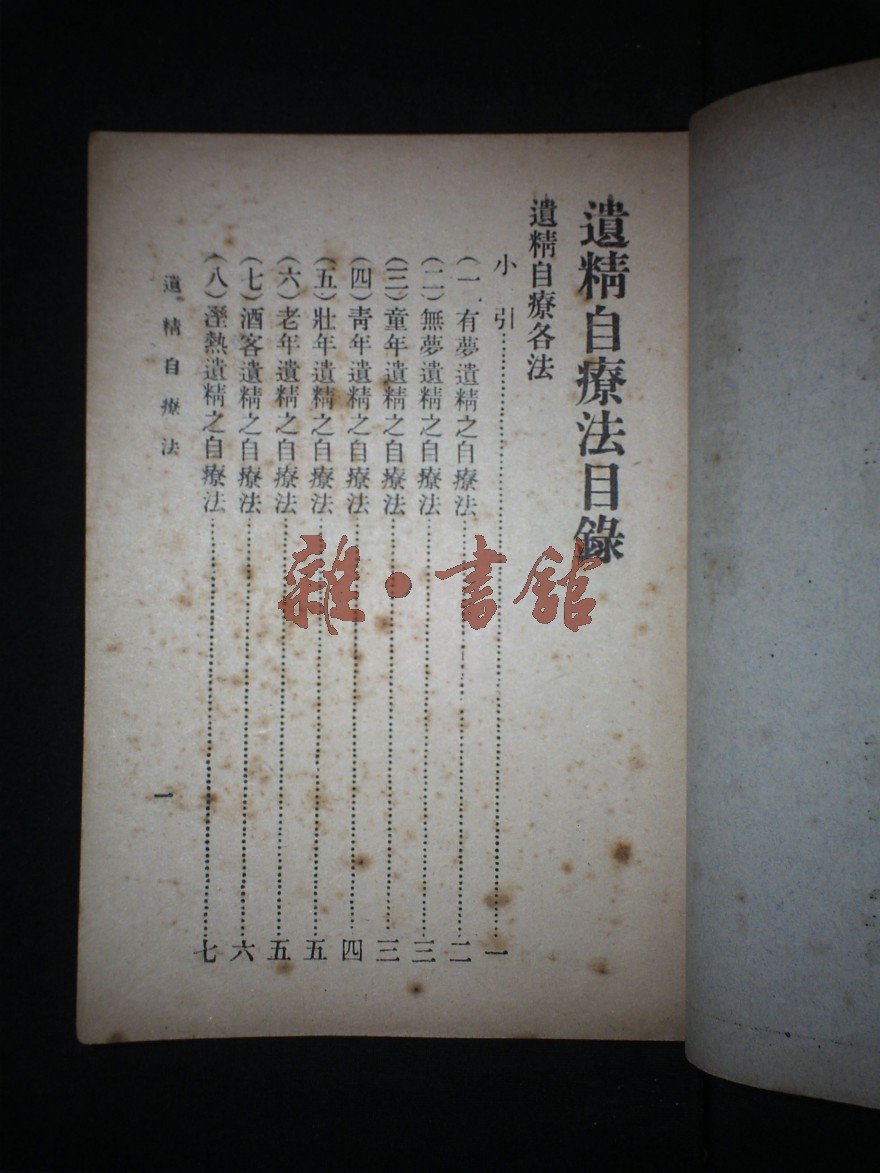 遺精自療法目錄
遺精自療各法
小引…………一
(一)有夢遺精之自療法…………二
(二)無夢遺精之自療法…………三
(三)童年遺精之自療法…………三
(四)靑年遺精之自療法…………四
(五)壯年遺精之自療法…………五
(六)老年遺精之自療法…………五
(七)酒客遺精之自療法…………六
(八)溼熱遺精之自療法…………七
遺精自療法 一
雜·書館